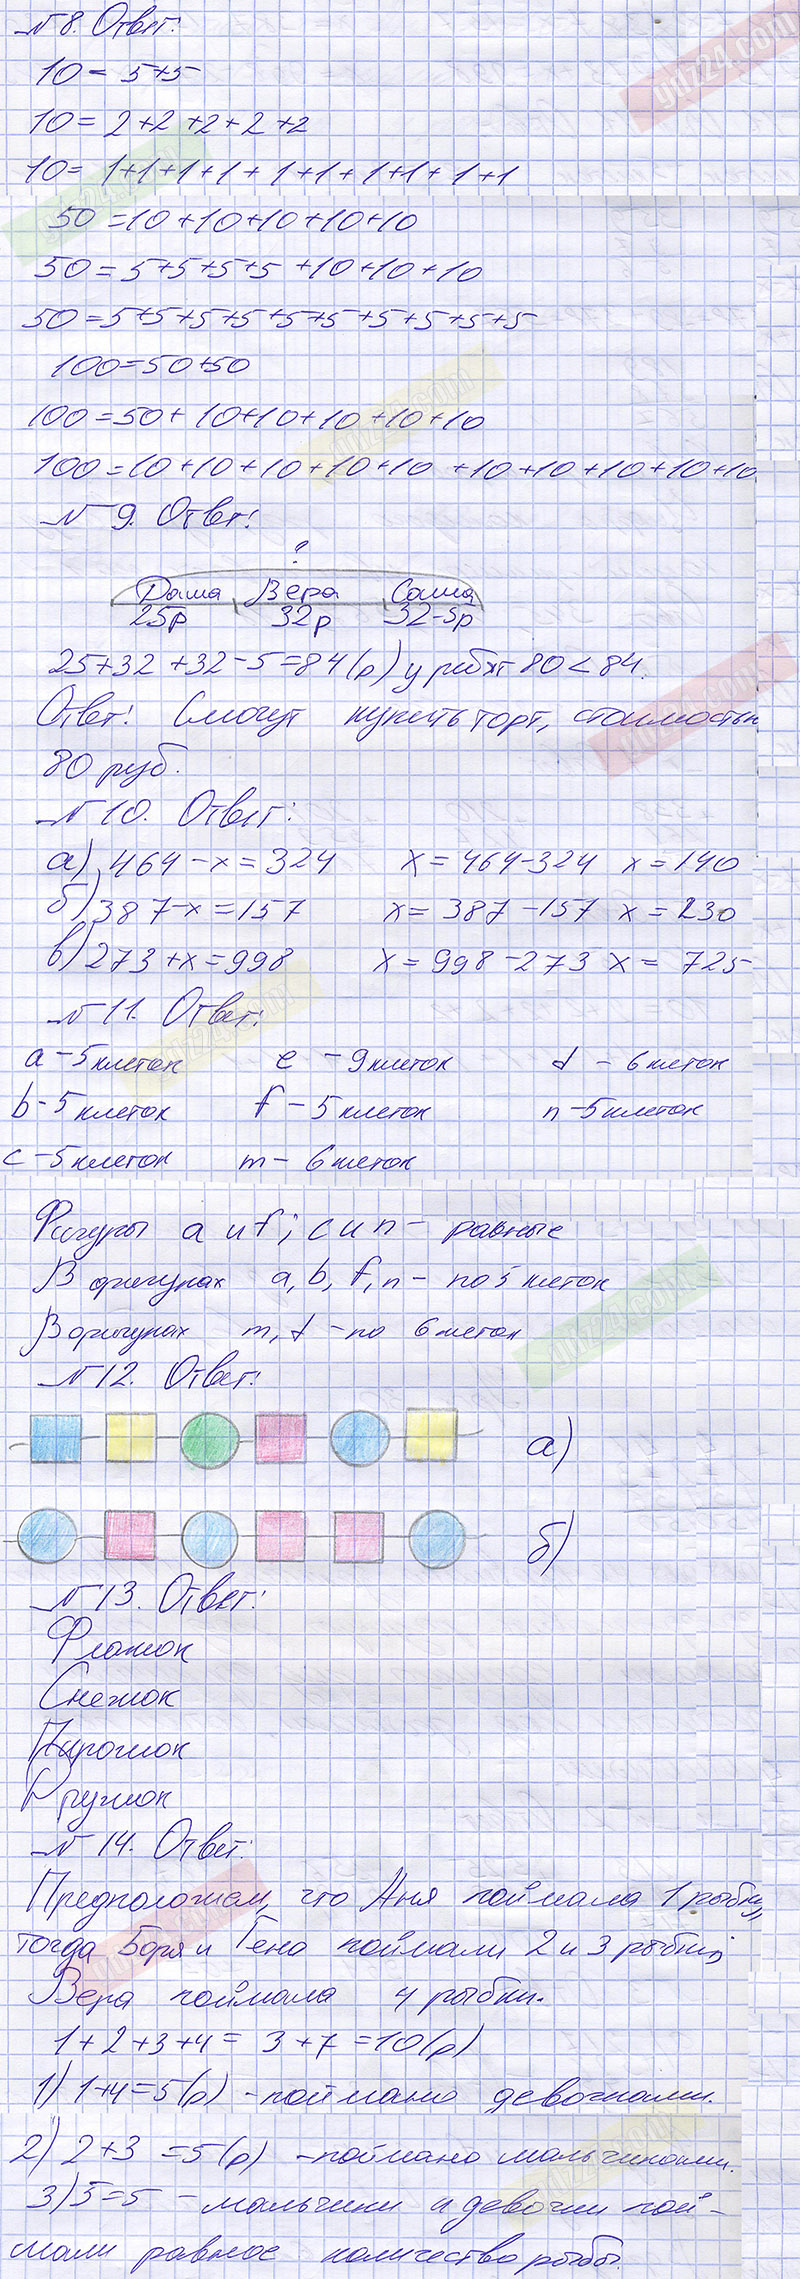 №8. Ответ:
10 = 5+5
10 = 2+2+2+2+2
10 = 1+1+1+1+1+1+1+1+1+1
50 = 10+10+10+10+10
50 = 5+5+5+5+10+10+10
50 = 5+5+5+5+5+5+5+5+5+5
100 = 50+50
100 = 50+10+10+10+10+10
100 = 10+10+10+10+10+10+10+10+10+10
№9. Ответ:
?
Даша Вера Саша
25р 32р 32-5р
25+32+32-5=84(р) у ребят 80<84.
Ответ: Смогут купить торт, стоимостью
80 руб.
№10. Ответ:
а) 464-x=324 x=464-324 x=140
б) 387-x=157 x=387-157 x=230
в) 273+x=998 x=998-273 x=725
№11. Ответ:
a - 5 клеток e - 9 клеток d - 6 клеток
b - 5 клеток f - 5 клеток n - 5 клеток
c - 5 клеток m - 6 клеток
Фигуры a и f; c и n - равные
В фигурах a, b, f, n - по 5 клеток
В фигурах m, d - по 6 клеток
№12. Ответ:
а)
б)
№13. Ответ:
Флажок
Снежок
Пирожок
Кружок
№14. Ответ:
Предположем, что Аня поймала 1 рыбку,
тогда Боря и Гена поймали 2 и 3 рыбки,
Вера поймала 4 рыбки.
1+2+3+4=3+7=10(р)
1) 1+4=5(р) - поймано девочками.
2) 2+3=5(р) - поймано мальчиками.
3) 5=5 - мальчики и девочки пой-
мали равное количество рыбы.
gdz24.com
gdz24.com
gdz24.com
gdz24.com
gdz24.com
gdz24.com
gdz24.com
gdz24.com